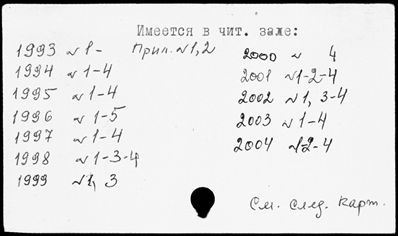 Имеется в чит. зале:
1993 №1- Прил. №1,2
1994 №1-4
1995 №1-4
1996 №1-5
1997 №1-4
1998 №1-3-4
1999 №1, 3
2000 № 4
2001 №1-2-4
2002 №1, 3-4
2003 №1-4
2004 №1-2-4
См. след. карт.